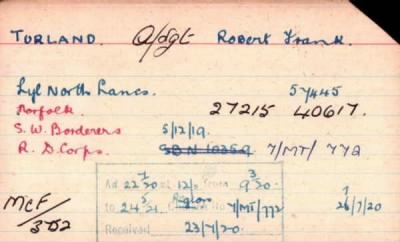 TURLAND. A/Sgt Robert Frank.
Lyl North Lancs. 57445
Norfolk. 27215 40617.
S. W. Borderers 5/12/19.
R. D. Corps. 7/MT/772
Ad 22 7/20 at 12/2 from 9 3/20
to 24 5/21 7/MT/772
Received 23/7/20. 26/7/20
McF/382